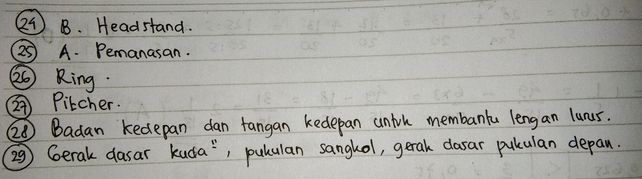 24 B. Headstand.
25 A. Pemanasan.
26 Ring.
27 Pitcher.
28 Badan kedepan dan tangan kedepan untuk membantu lengan lurus.
29 Gerak dasar kuda", pukulan sangkol, gerak dasar pukulan depan.